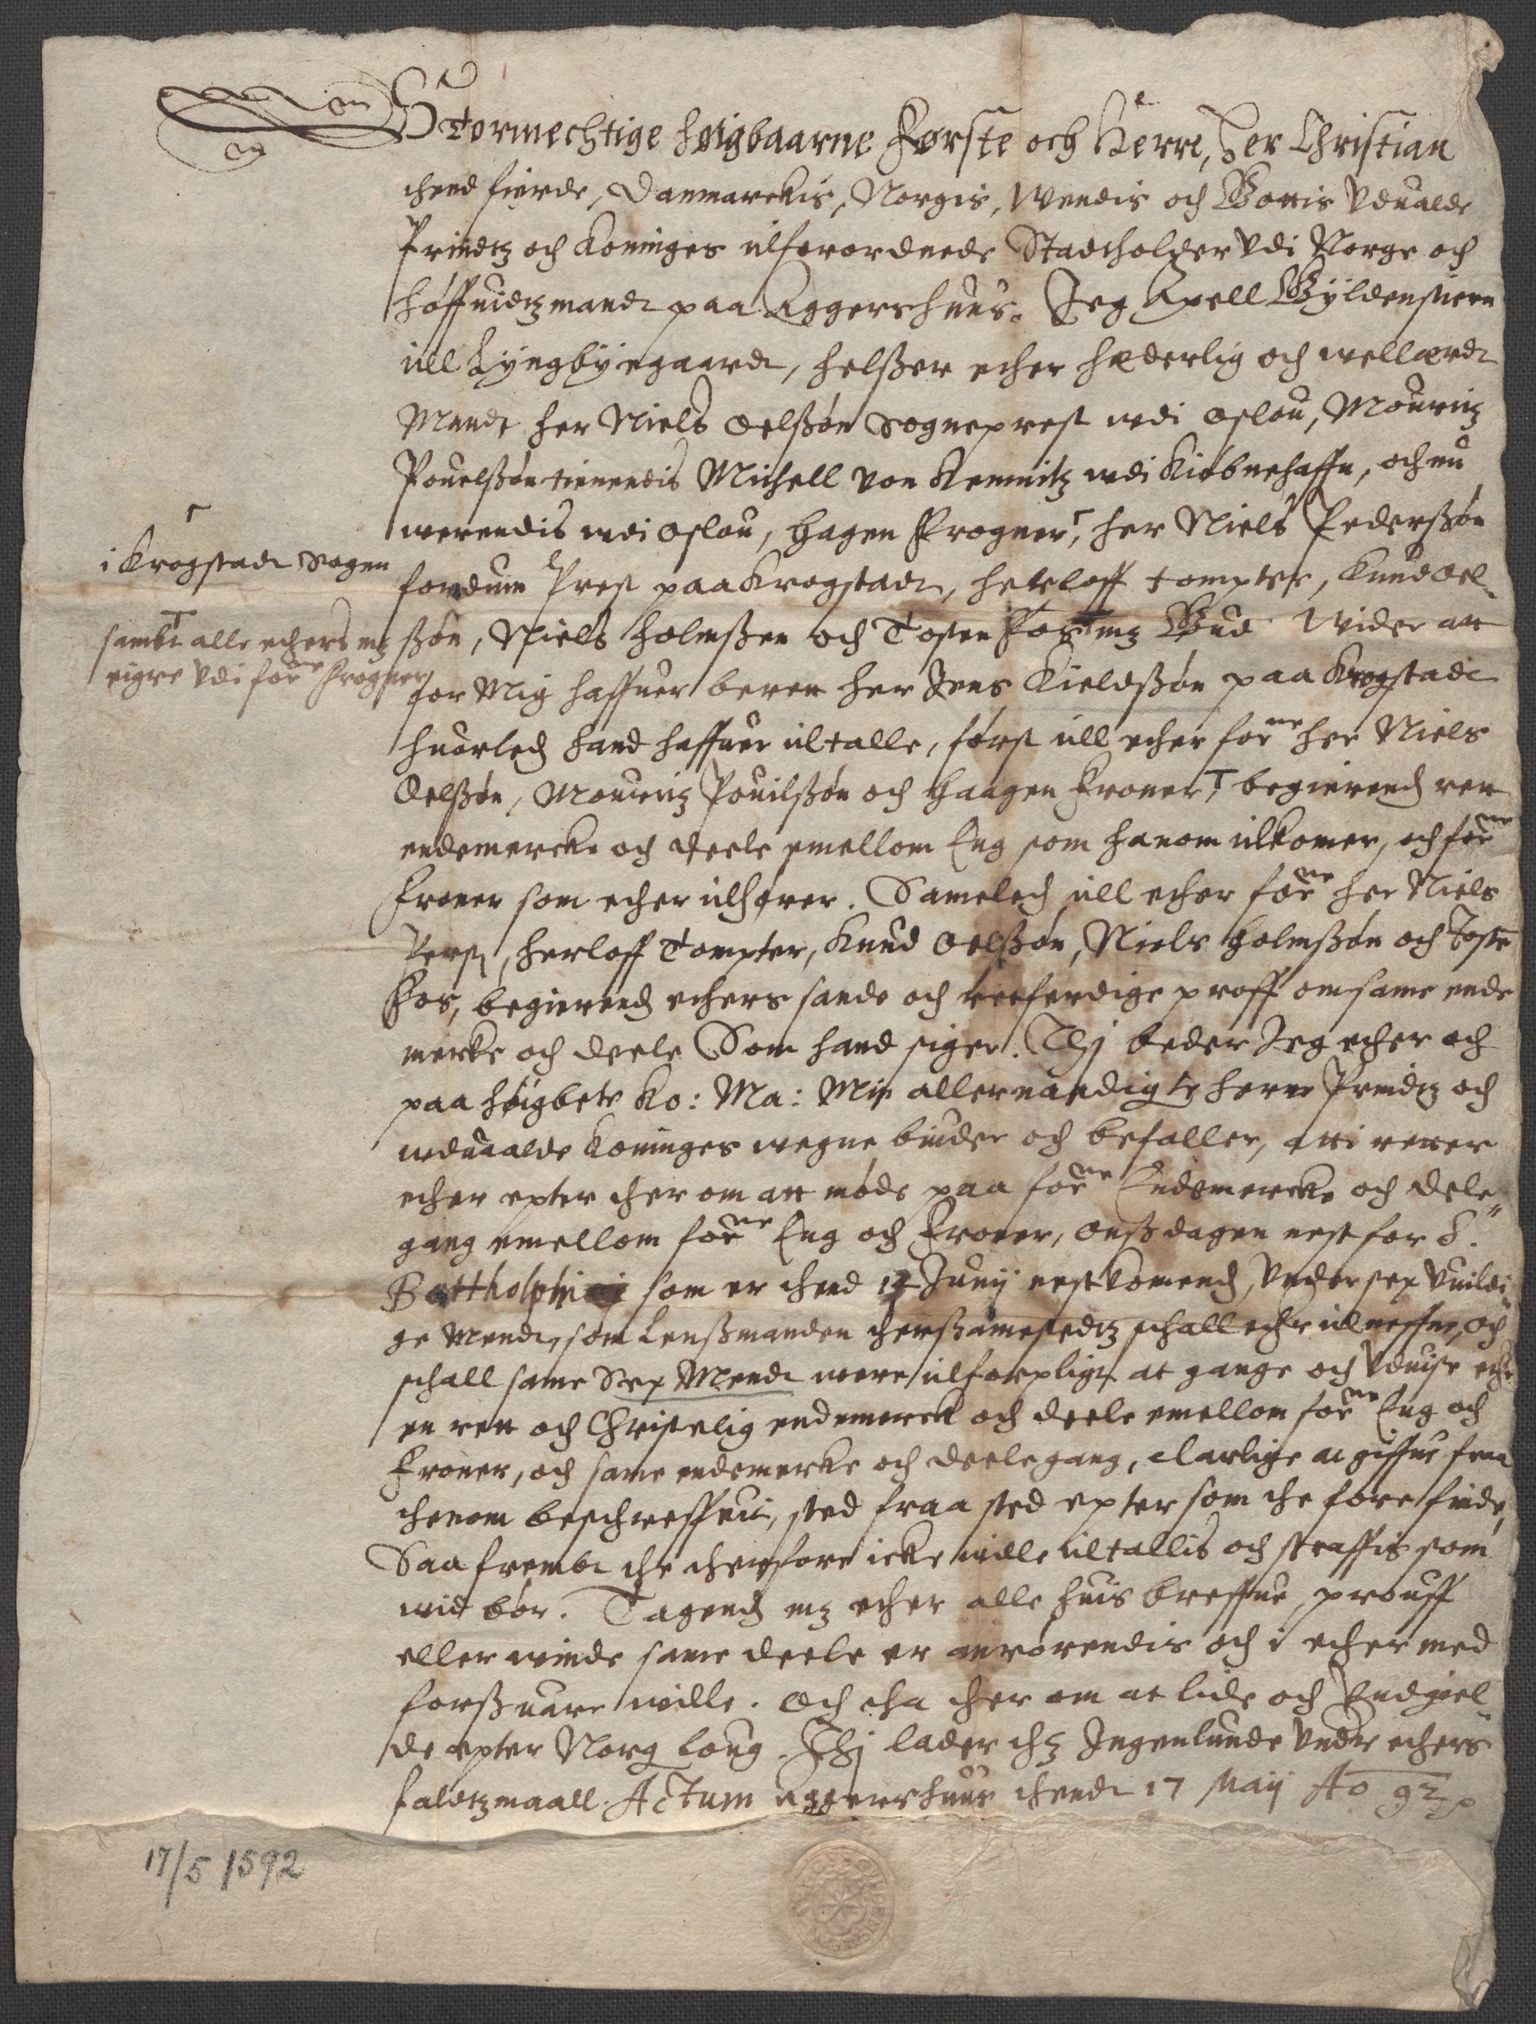 Stormechtige høigbaarne Første och Herre, Her Christian
thend fierde, Danmarckis, Norgis, Wendis och Gottis Vdualde
Prindtz och Koninges tilforordnede Stadtholder Vdi Norge och
Høffuidtzmandt paa Aggershuus. Jeg Axell Gÿldenstiern
till Lÿngbÿegaardt, helßer ether hæderlig och wellærdt
Mandt her Niels Oelßøn Sogneprest wdi Oslou, Mouritz
Pouelßøn tienendis Michell von Kemnitz wdi Kiøbnehaffn, och nu
werendis wdi Oslou, Hagen Frogner, her Niels Pederßøn
i Krogstadt Sogen
fordum Prest paa Krogstadt, Herloff Tompter, Knud Oel-
sambt alle ethers mz
ßøn, Niels Holmßen och Tosten Fos mz Gud Wider att
eigre Vdi forne Frogner
for Mig haffuer beret her Jens Kieldßøn paa Krogstadt
huorledh hand haffuer tiltalle, først till ether forne her Niels
Oelßøn, Mouritz Pouilßøn och Haagen Froner, begierendh rett
endemercke och deele emellom Eng som hanom tilkomer, och forne
Froner som ether tilhører. Sameledh till ether forne her Niels
Perß, Herloff Tompter, Knud Oelßøn, Niels Holmßøn och Toste
Fos, begierendh ethers sande och retferdige proff om same ende
merke och deele Som hand siger. Thj beder Jeg ether och
paa høigbete Ko: Ma: Min allernaadigste herre Prindtz och
wduaalde Koninges wegne biuder och befaller, att i retter
ether epter ther om att møde paa forne Endemercke och dele
gang emellom forne Eng och Froner, Onßdagen nest for S.
Bottholphi som er thend 14 Junij nestkomendh, Vnder sex Vuildi-
ge Mendt, som Lenßmanden therßamestedtz schall ether tilneffne, och
schall same Sex Mendt were tilforpligt at gange och Vduise ether
en rett och Christelig endemerck och deele emellom forne Eng och
Froner, och same endemerke och deelegang, clarlige at giffue fraa
thenom beschreffuit, sted fraa sted epter som the fore finde,
Saa frembt the therfore icke wille tiltallis och straffis som
wid bør. Tagendh mz ether alle huis breffue, prouff
eller winde same deele er anrørendis och i ether med
forßuare wille. Och tha ther om at lide och Vndgiel-
de epter Norg Loug. Thj lader thz Ingenlunde Vnder ethers
faldtzmaall. Actum Aggershuus thendt 17 Maij Ao 92
17/5 1592